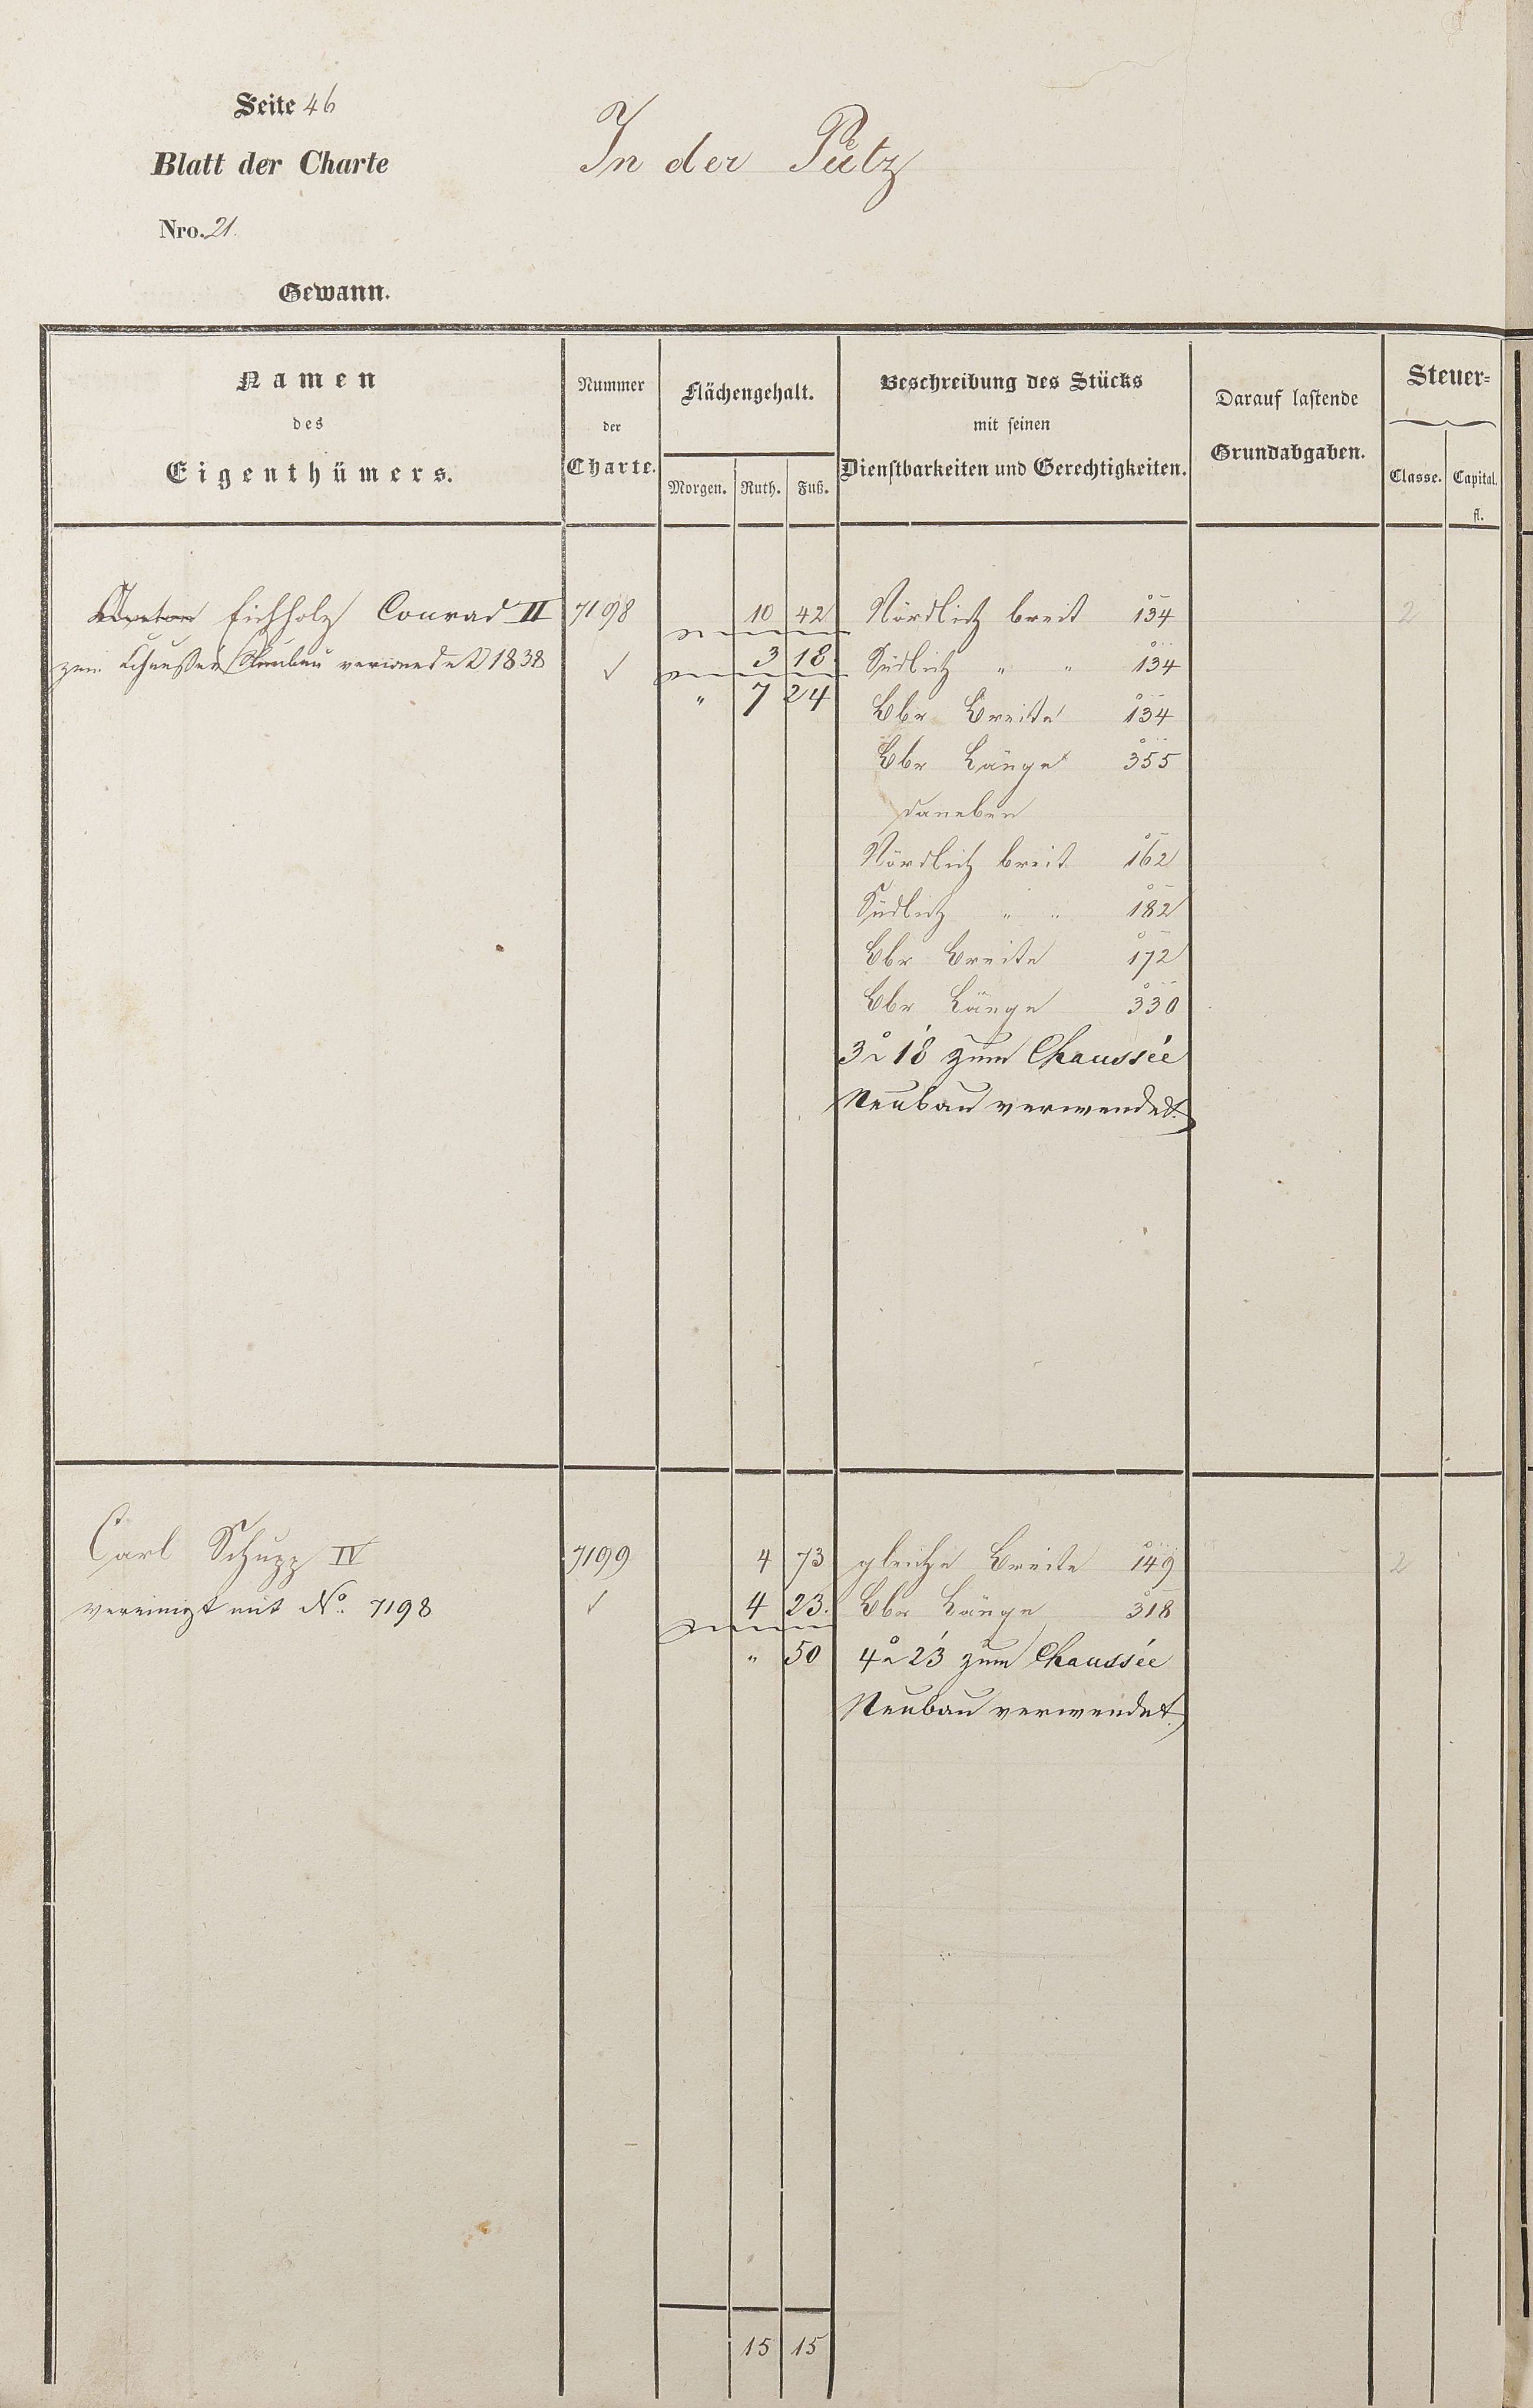 Seite 46
Blatt der Charte
In der Pütz
Nro. 21.
Gewann.
Namen
des
Eigenthümers.
Nummer
der
Charte.
Flächengehalt.
Morgen. Ruth. Fuß.
Beschreibung des Stücks
mit seinen
Dienstbarkeiten und Gerechtigkeiten.
Darauf lastende
Grundabgaben.
Steuer=
Classe. Capital.
fl.
Anton Eichholz Conrad II 7198 10 42 Nördlich breit 134 2
zum Chaussee Neubau verwendet 1838 ✓ 3 18 Südlich " " 134
" 7 24 Lbr Breite 134
Lbr Länge 355
daneben
Nördlich breit 162
Südlich " " 182
Lbr Breite 172
Lbr Länge 330
3° 18' zum Chaussée
Neubau verwendet.
Carl Schupp IV 7199 4 73 gleiche Breite 149 2
vereinigt mit No. 7198 ✓ 4 23. Lbr Länge 318
" 50 4° 23' zum Chaussée
Neubau verwendet.
15 15